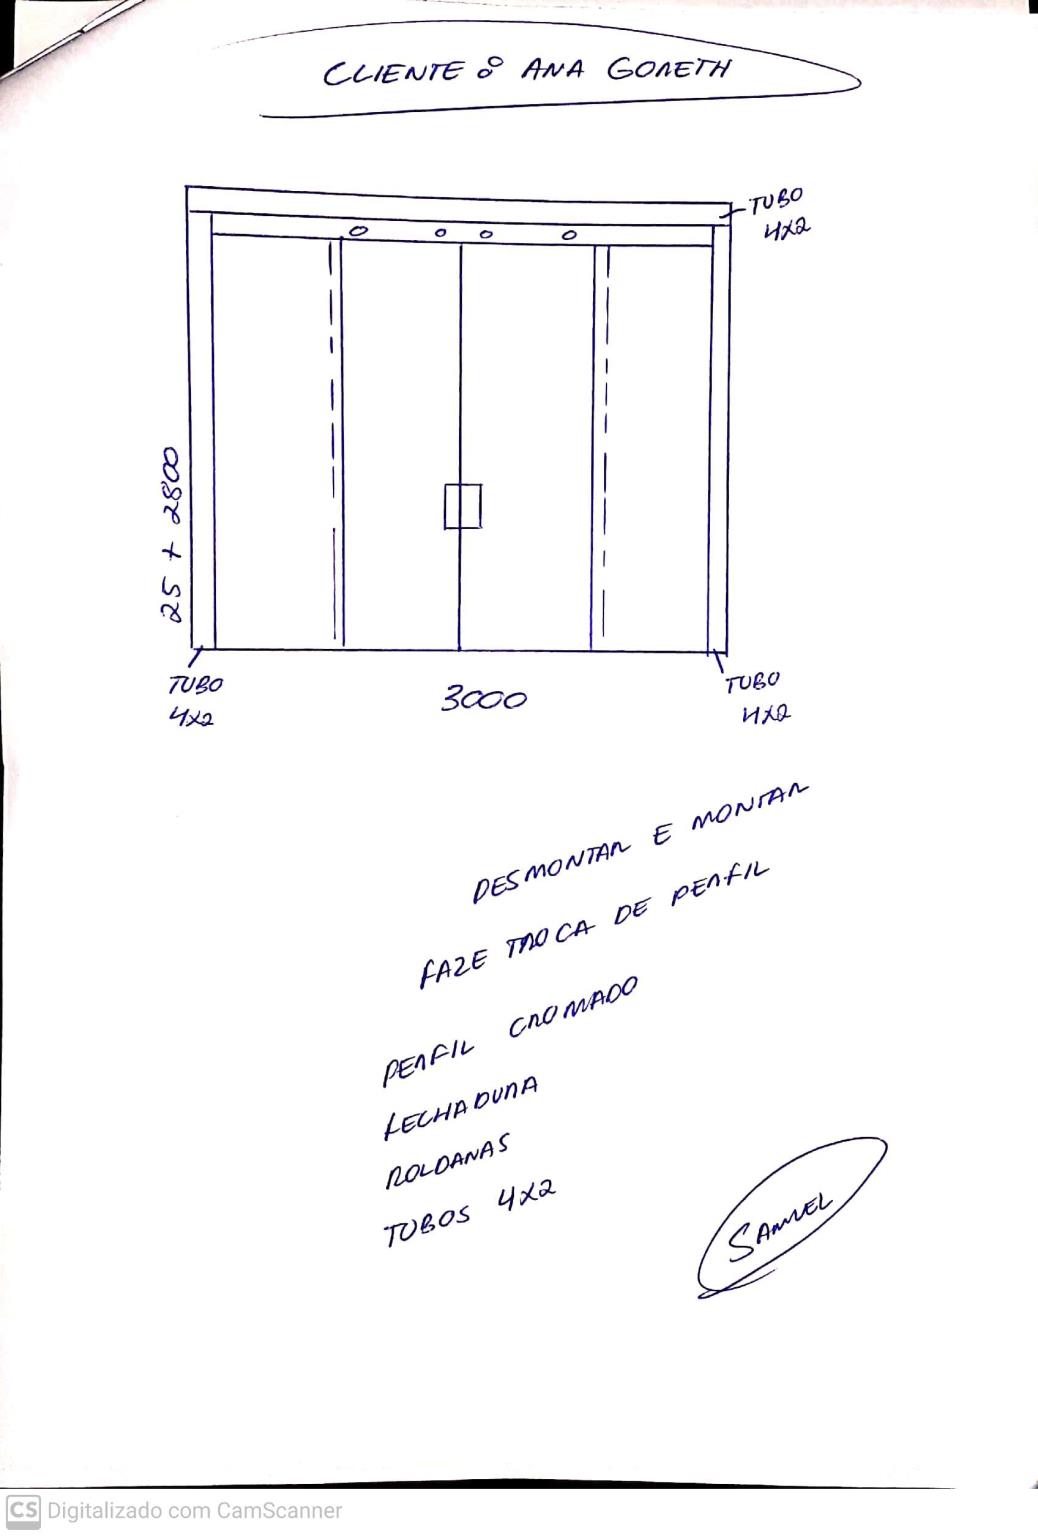 CLIENTE : ANA GORETH
TUBO
4X2
25 + 2800
TUBO
4X2
3000
TUBO
4X2
DESMONTAR E MONTAR
FAZE TROCA DE PERFIL
PERFIL CROMADO
FECHADURA
ROLDANAS
TUBOS 4X2
SAMUEL
CS Digitalizado com CamScanner